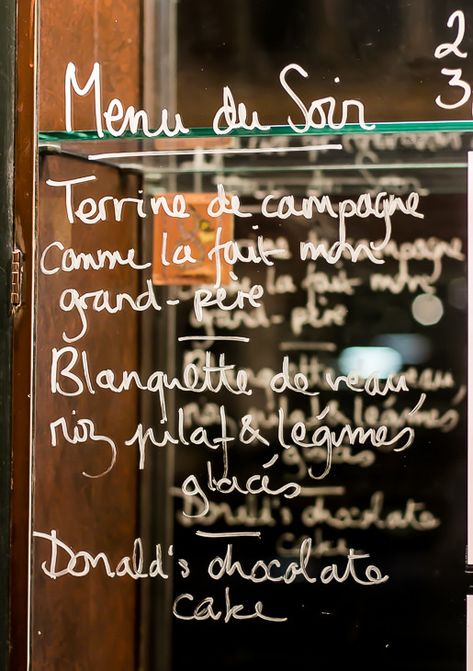 2
Menu du Soir
3
Terrine de campagne
comme la fait mon
grand-père
Blanquette de veau,
riz pilaf & légumes
glacés
Donald's chocolate
cake